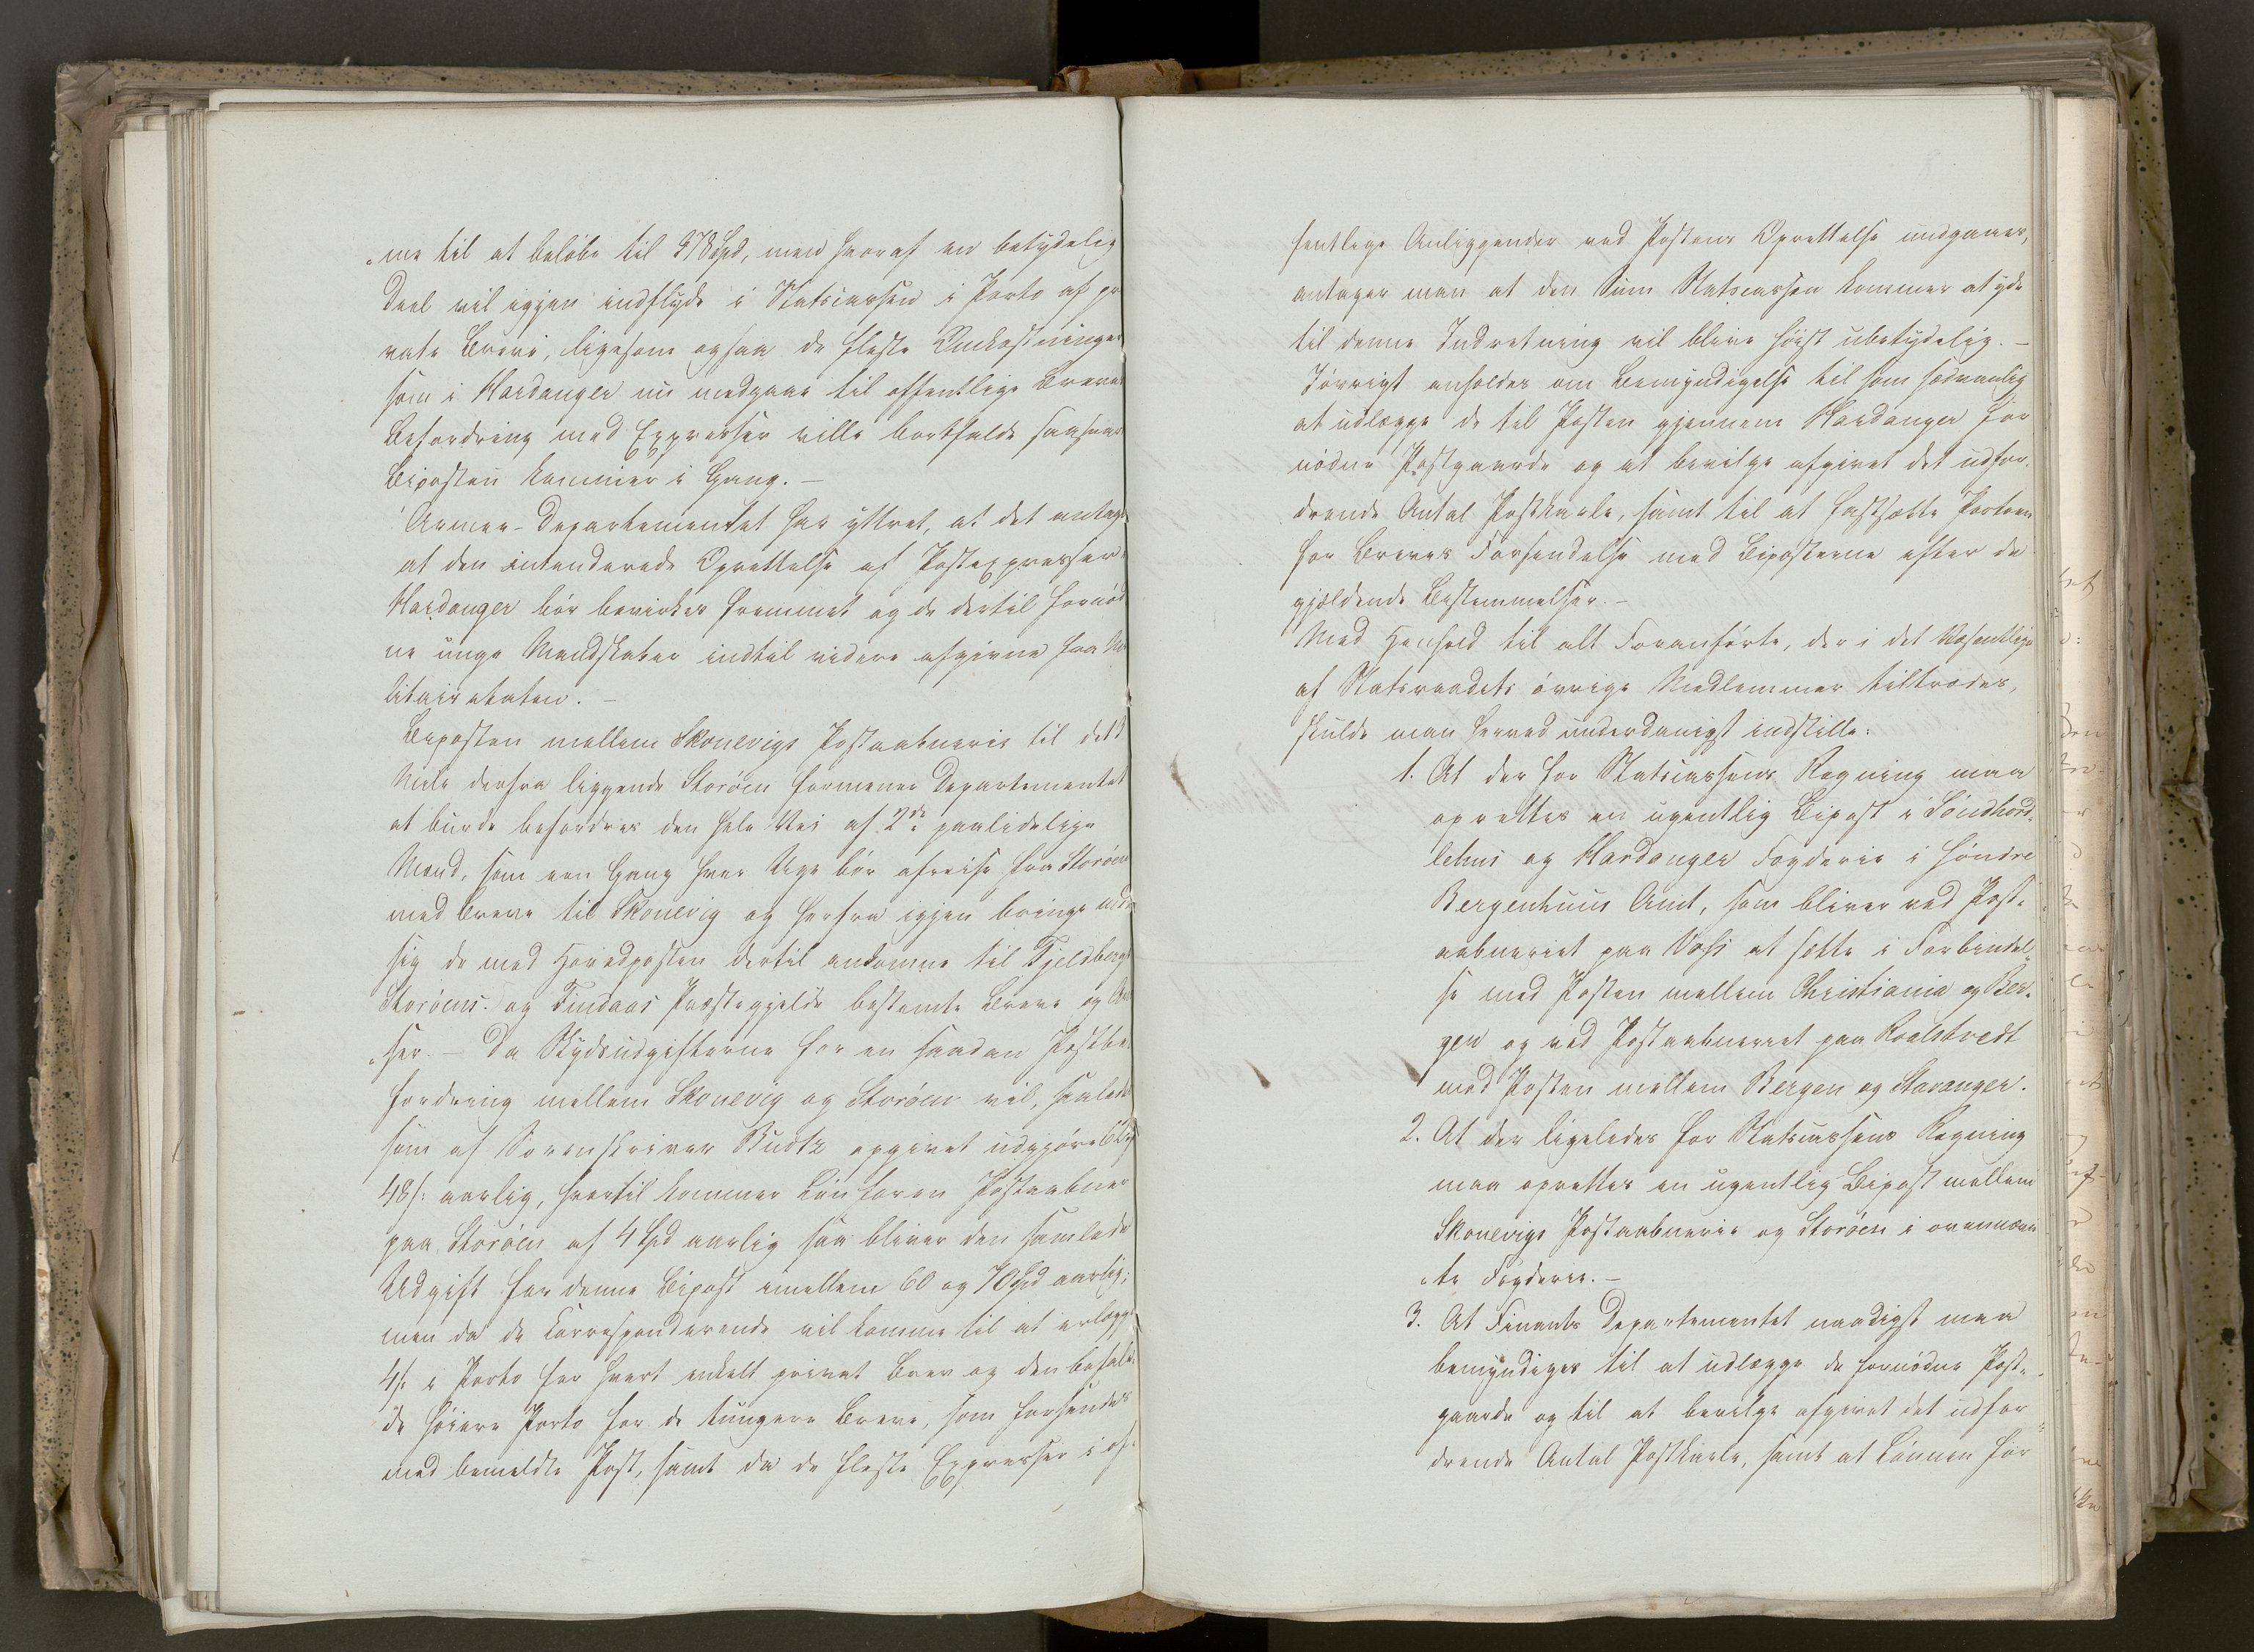 "me til at beløbe til 378 Spd, men hvoraf en betydelig
Deel vil igjen indflyde i Statscassen i Porto af pri
vate Breve, ligesom ogsaa de fleste Omkostninger
som i Hardanger nu medgaae til offentlige Breves
Befordring med Expresser ville bortfalde saasnart
Biposten kommer i Gang. —
Armee-Departementet har yttret, at det antages
at den intenderede Oprettelse af Postexpresser i
Hardanger bør bevirkes fremmet og de dertil fornød
ne unge Mandskaber indtil videre afgivne fra Mi
litairetaten. —
Biposten mellem Skonevigs Postaabnerie til det
Mile derfra liggende Storøen formener Departementet
at burde befordres den hele Vei af 2de paalidelige
Mænd, som een Gang hver Uge bør afreise fra Storøen
med Breve til Skonevig og herfra igjen bringe med
sig de med Hovedposten dertil ankomne til Fjeldbergs
Storøens og Findaas Præstegjelde bestemte Breve og
"ser. — Da Skydsudgifterne for en saadan Postbe
fordring mellem Skonevig og Storøen vil, saaledes
som af Sorenskriver Budtz opgivet udgjøre
48 s: aarlig, hvortil kommer Løn for en Postaabner
paa Storøen af 4 Spd aarlig saa bliver den samlede
Udgift for denne Bipost imellem 60 og 70 Spd aarlig;
men da de Correspondererende vil komme til at erlægge
4 s: i Porto for hvert enkelt privat Brev og den befale
de høiere Porto for de tungere Breve, som forsendes
med bemeldte Post, samt da de fleste Expresser i of-
fentlige Anliggender ved Postens Oprettelse undgaaes,
antager man at den Sum Statscassen kommer at yde
til denne Indretning vil blive høist ubetydelig. —
Iøvrigt anholdes om Bemyndigelse til som sædvanlig
at udlægge de til Posten gjennem Hardanger for
nødne Postgaarde og at bevilge afgivet det udfor-
drende Antal Postkarle, samt til at fastsætte Portoen
for Breves Forsendelse med Biposterne efter de
gjældende Bestemmelser. —
Med Henhold til alt Foranførte, der i det Væsentlige
af Statsraadets øvrige Medlemmer tiltrædes,
skulde man herved underdanigst indstille:
1. At der for Statscassens Regning maa
oprettes en ugentlig Bipost i Søndhord-
lehns og Hardanger Fogderie i søndre
Bergenhuus Amt, som bliver ved Post-
aabneriet paa Voss at sætte i Forbindel-
se med Posten mellem Christiania og Ber-
gen og ved Postaabneriet paa Roalstvedt
med Posten mellem Bergen og Stavanger.
2. At der ligeledes for Statscassens Regning
maa oprettes en ugentlig Bipost mellem
Skonevigs Postaabnerie og Storøen i ovennævn
"te Fogderie. —
3. At Finants Departementet naadigst maa
bemyndiges til at udlægge de fornødne Post-
gaarde og til at bevilge afgivet det udfor-
drende Antal Postkarle, samt at Lønnen for